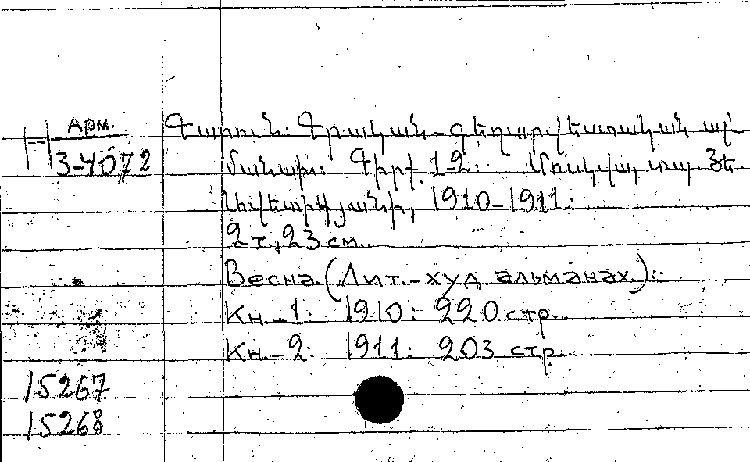 Арм.
3-4072
Գարուն: Գրական-գեղարվեստական ալ-
մանախ: Գիրք 1-2: Մոսկվա, տպ.
1910-1911:
2т., 23 см.
Весна. (Лит.-худ. альманах.):
Кн.-1: 1910: 220 стр.
Кн.-2: 1911: 203 стр.
15267
15268